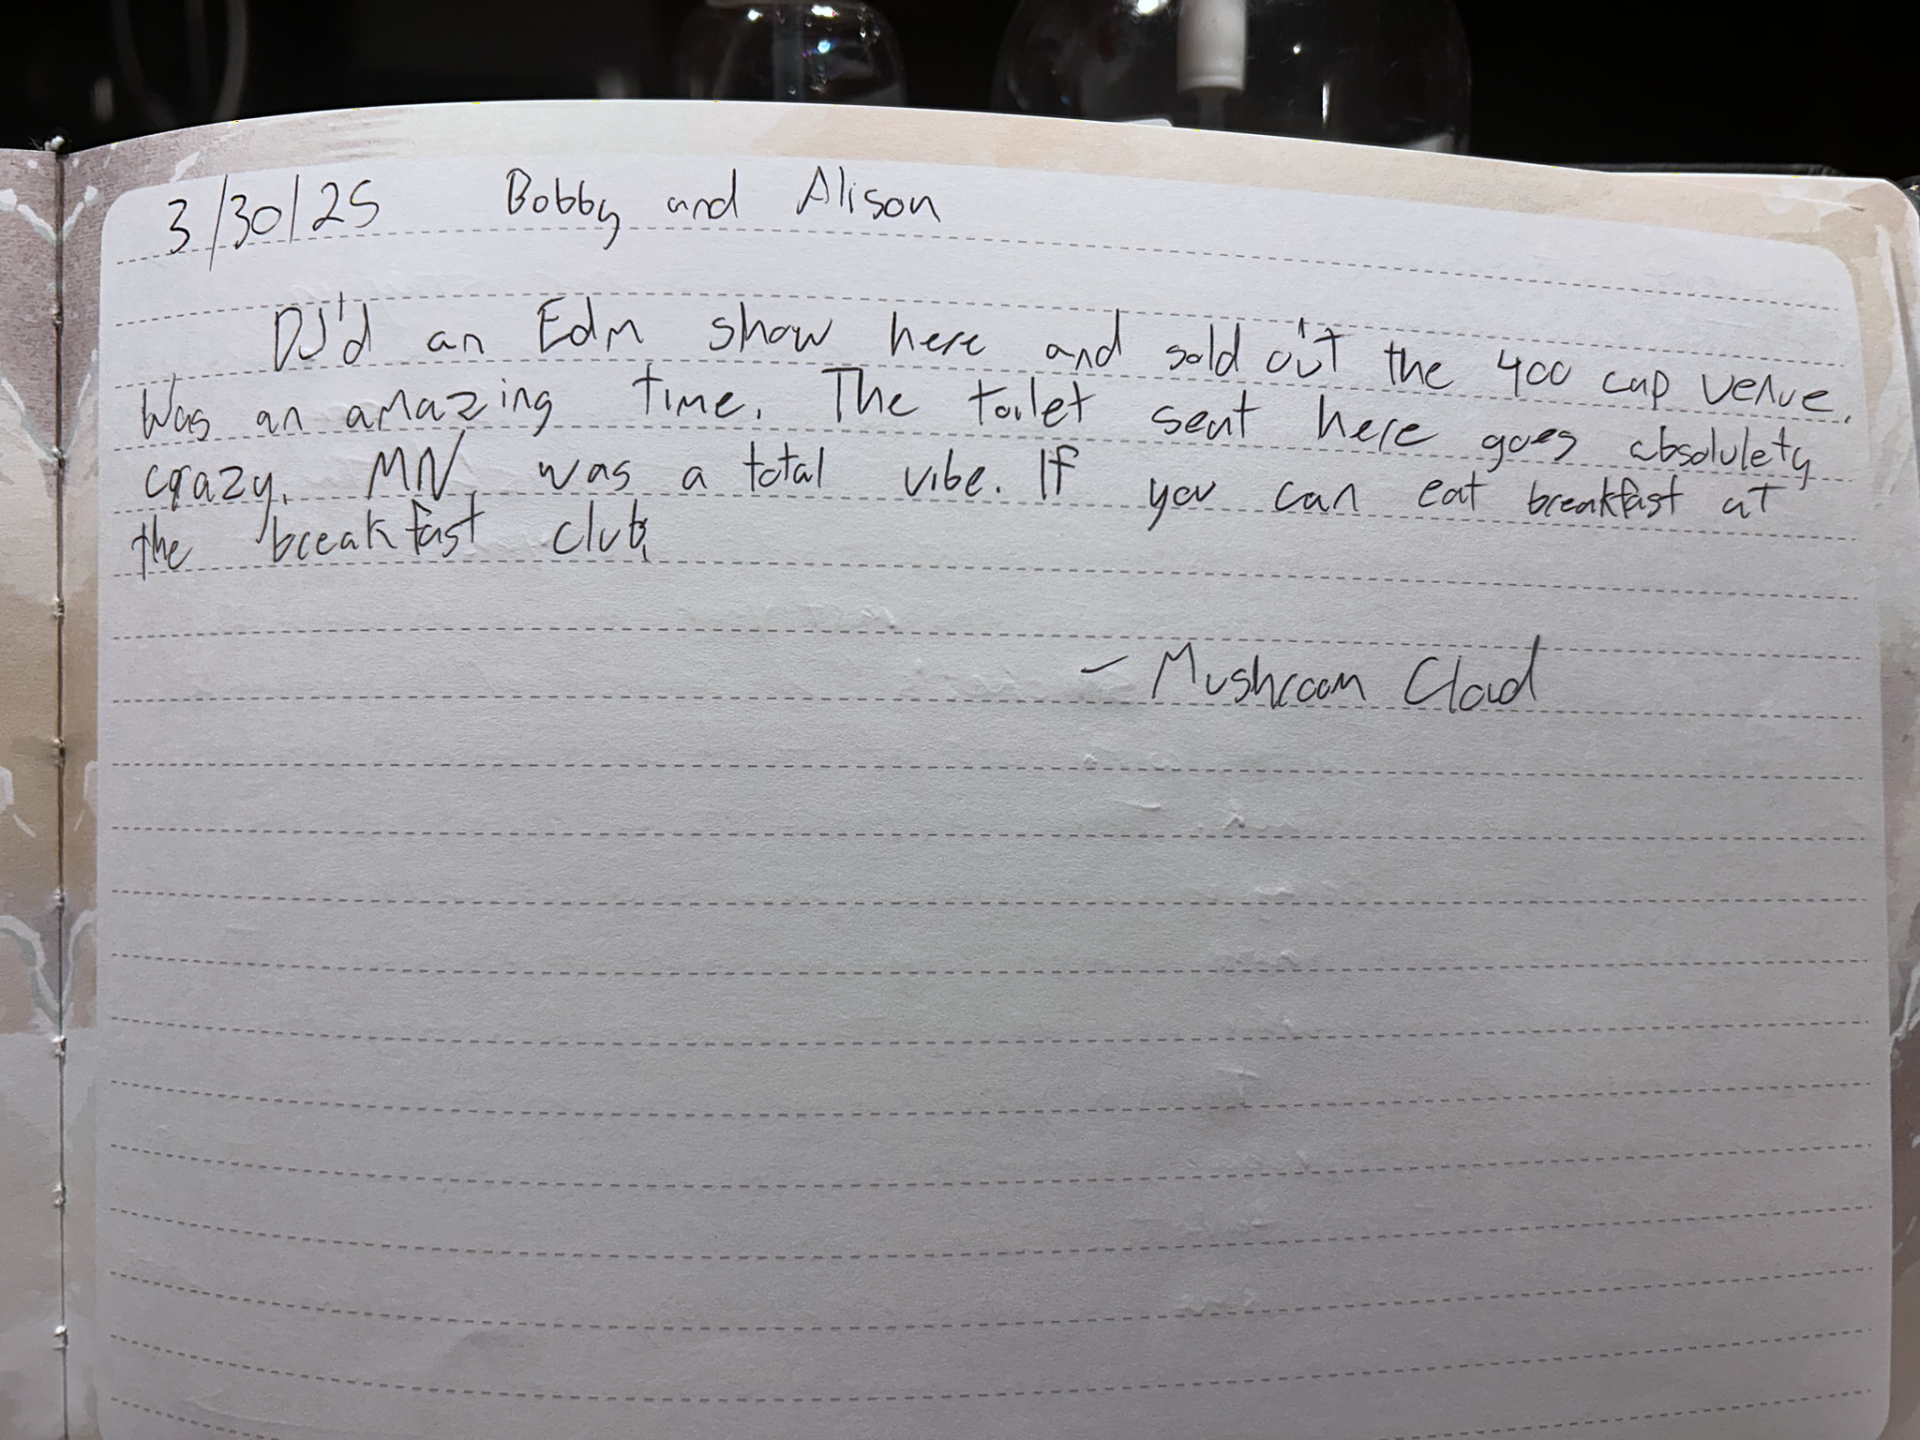 3/30/25 Bobby and Alison
DJ'd an Edm show here and sold out the 400 cap venue.
Was an amazing time. The toilet seat here goes absolulety
crazy. MN was a total vibe. If you can eat breakfast at
the breakfast club.
- Mushroom Cloud